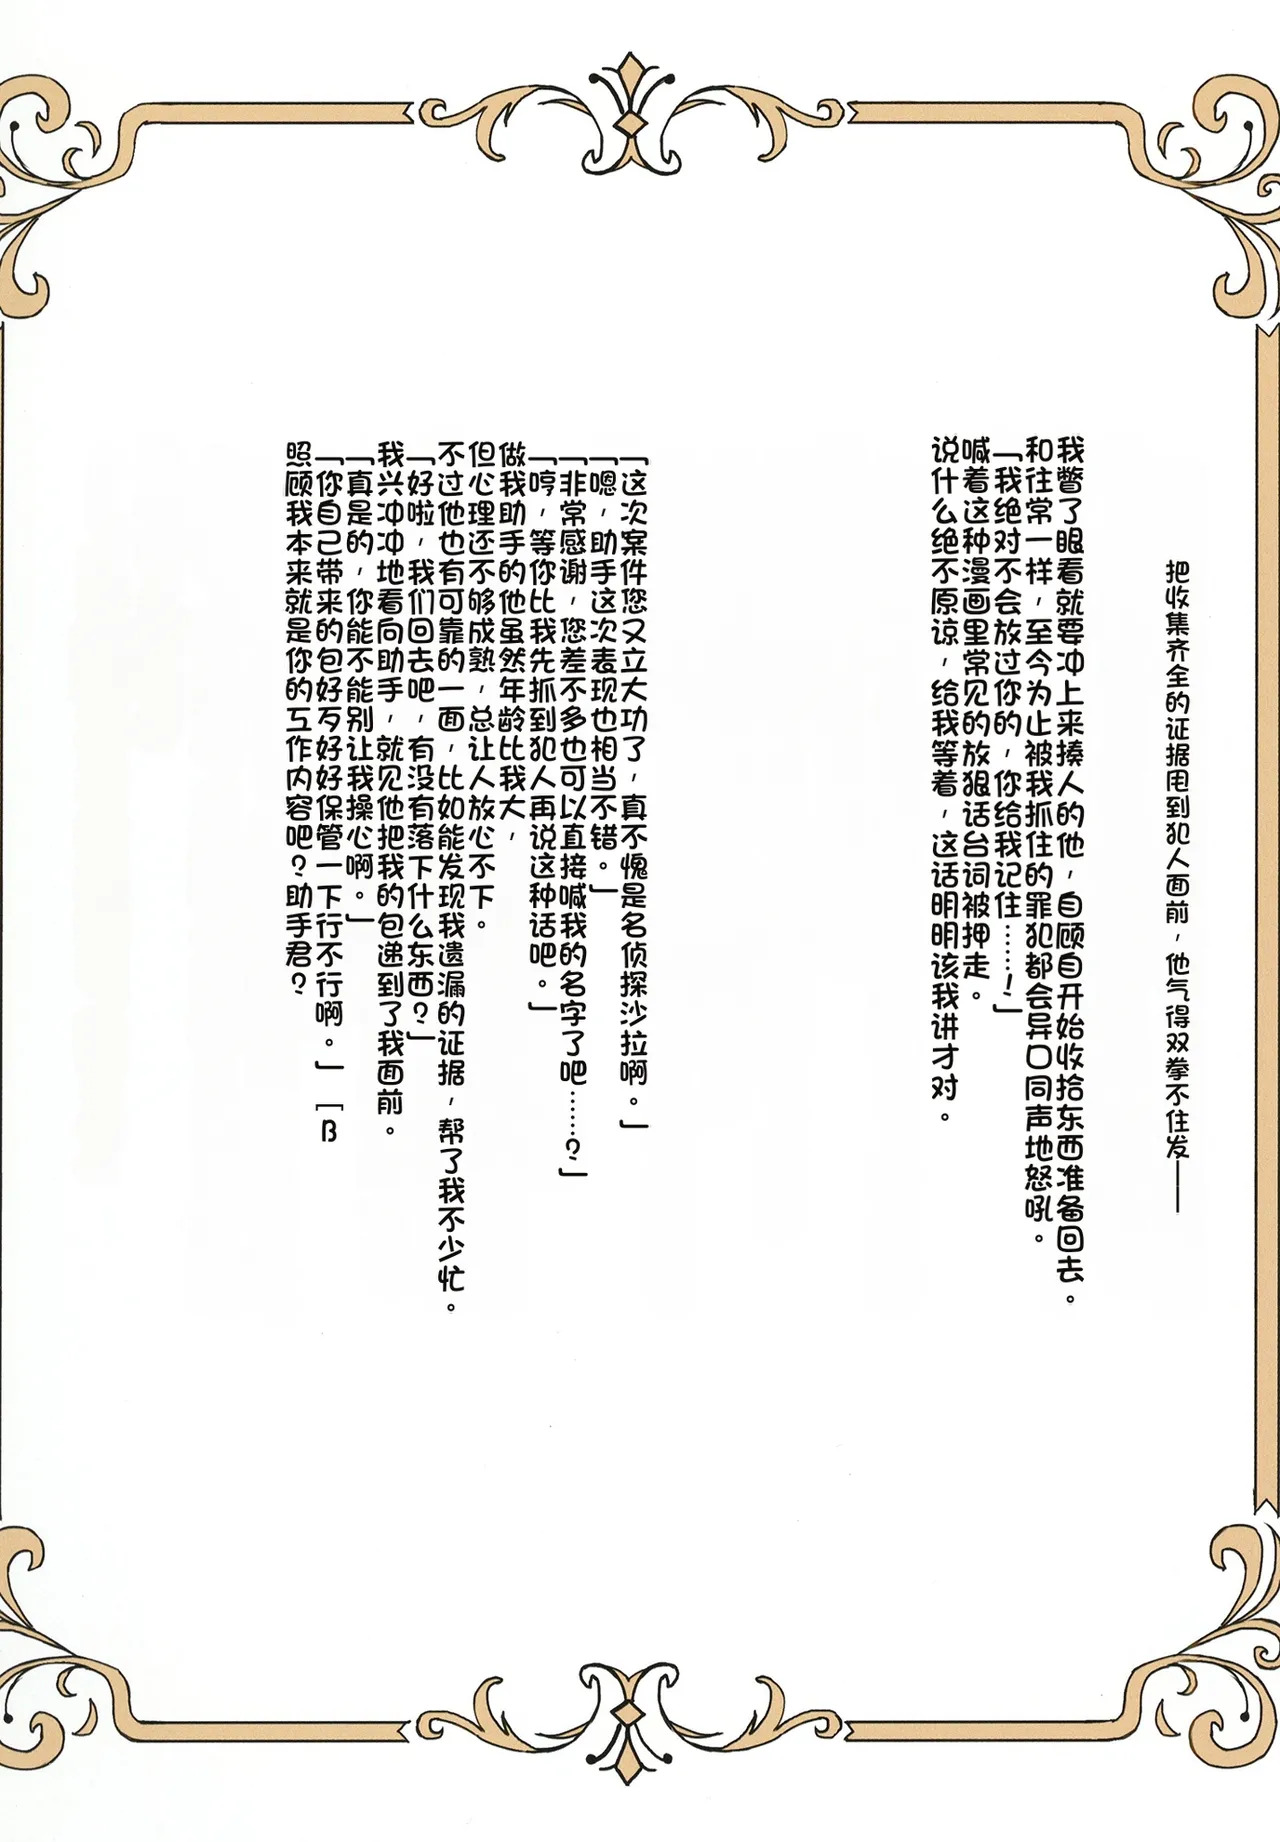 把收集齐全的证据甩到犯人面前，他气得双拳不住发——
我瞥了眼看就要冲上来揍人的他，自顾自开始收拾东西准备回去。
和往常一样，至今为止被我抓住的罪犯都会异口同声地怒吼。
「我绝对不会放过你的，你给我记住……！」
喊着这种漫画里常见的放狠话台词被押走。
说什么绝不原谅，给我等着，这话明明该我讲才对。
「这次案件您又立大功了，真不愧是名侦探沙拉啊。」
「嗯，助手这次表现也相当不错。」
「非常感谢，您差不多也可以直接喊我的名字了吧……？」
「哼，等你比我先抓到犯人再说这种话吧。」
做我助手的他虽然年龄比我大，
但心理还不够成熟，总让人放心不下。
不过他也有可靠的一面，比如能发现我遗漏的证据，帮了我不少忙。
「好啦，我们回去吧，有没有落下什么东西？」
我兴冲冲地看向助手，就见他把我的包递到了我面前。
「真是的，你能不能别让我操心啊。」
「你自己带来的包好歹好好保管一下行不行啊。」［B
照顾我本来就是你的工作内容吧？助手君？